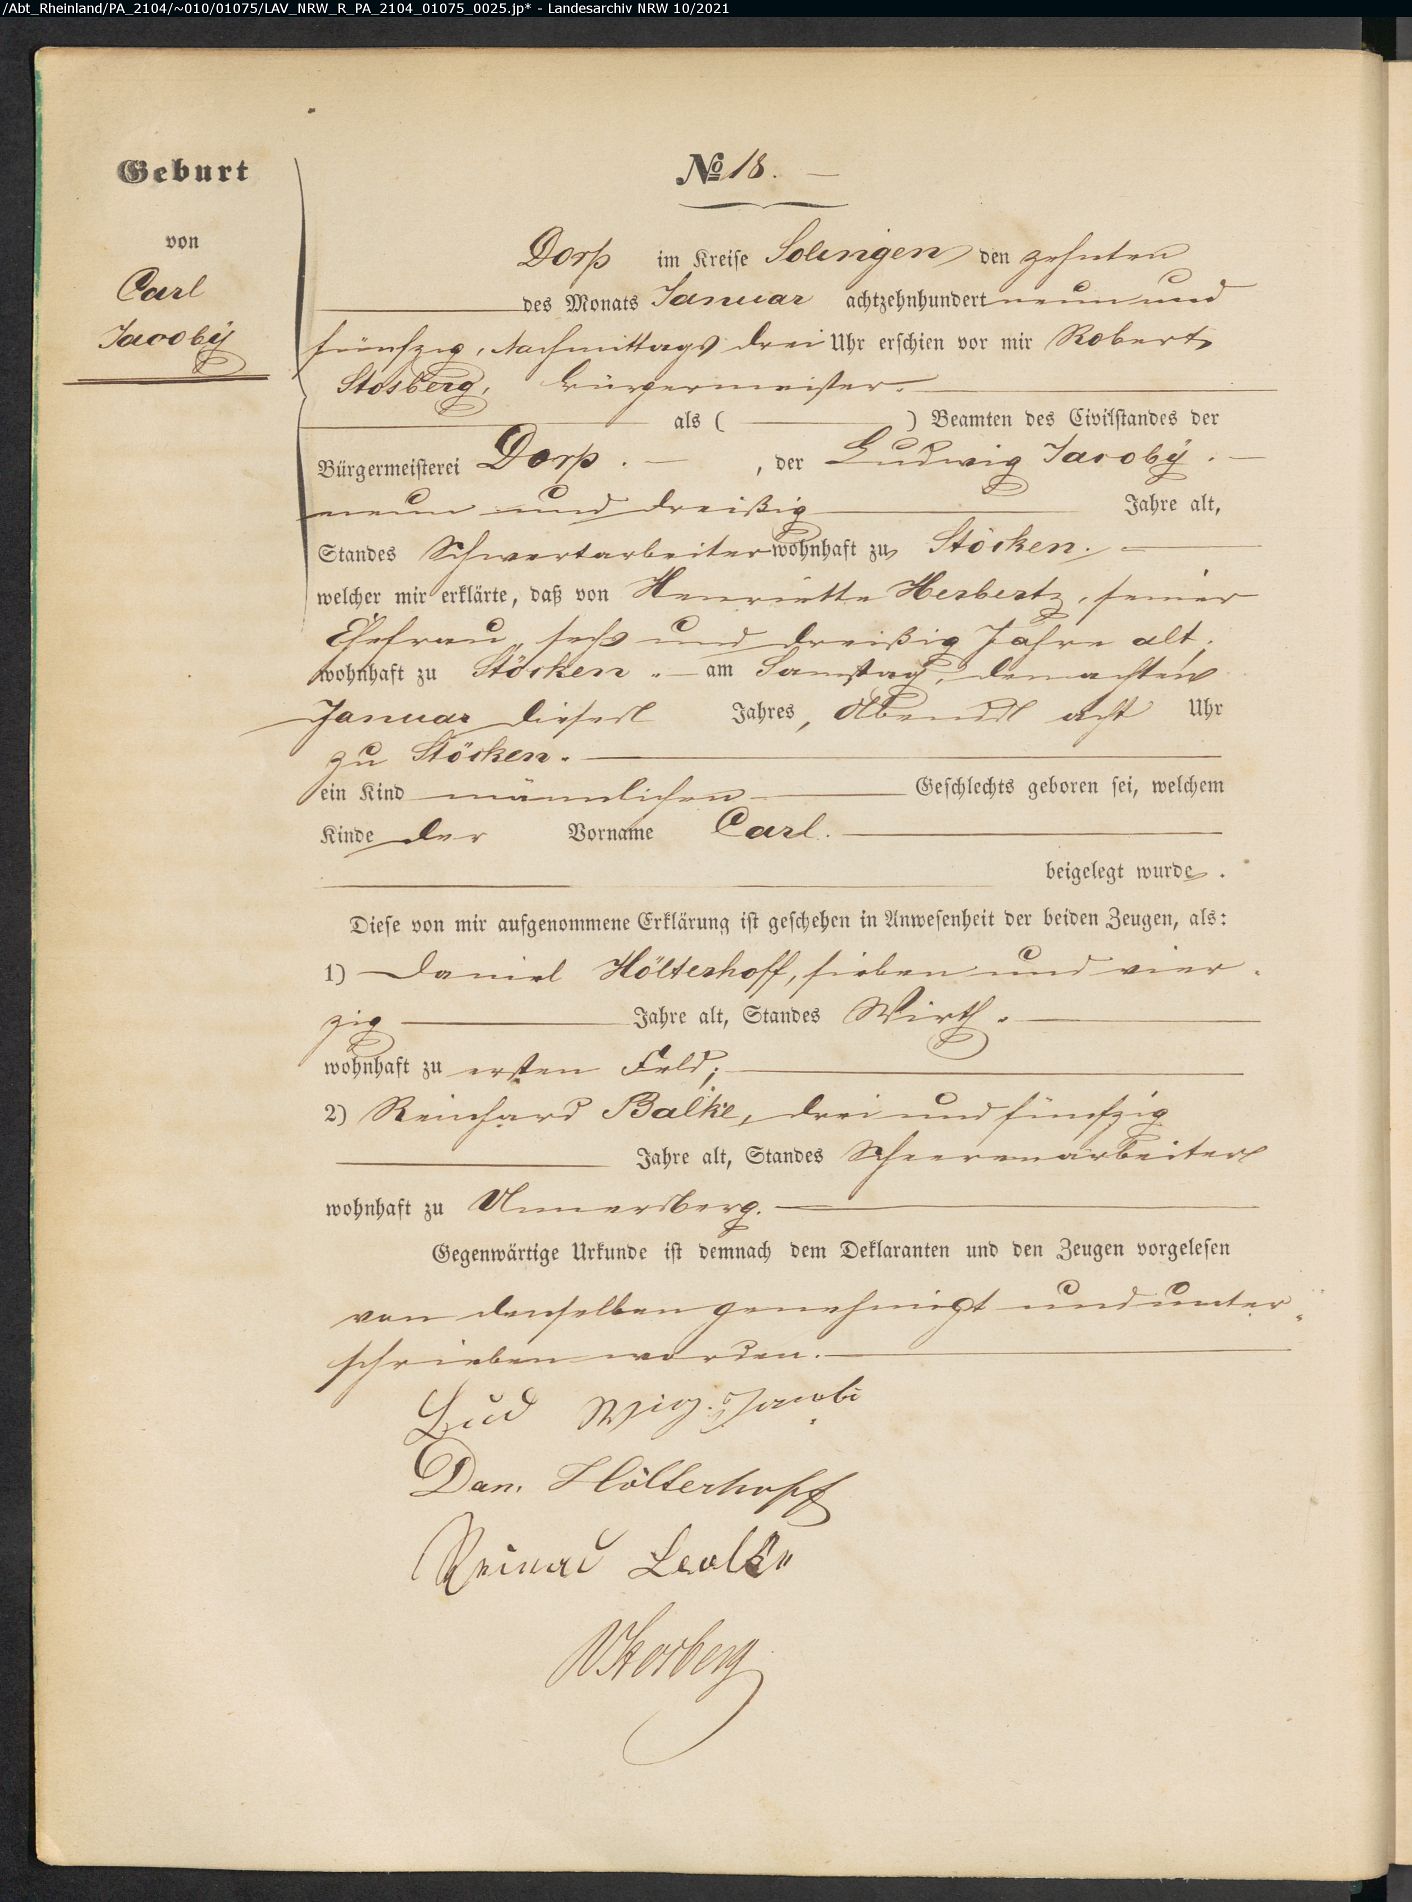 /Abt_Rheinland/PA_2104/~010/01075/LAV_NRW_R_PA_2104_01075_0025.jp* - Landesarchiv NRW 10/2021
Geburt
von
Carl
Jacoby
№ 18.
Dorp im Kreise Solingen den zehnten
des Monats Januar achtzehnhundert neun und
fünfzig, Nachmittags drei Uhr erschien vor mir Robert
Stosberg, Bürgermeister.
als ( ) Beamten des Civilstandes der
Bürgermeisterei Dorp. , der Ludwig Jacoby.
neun und dreißig Jahre alt,
Standes Schwertarbeiter wohnhaft zu Stöcken.
welcher mir erklärte, daß von Henriette Herbertz, seiner
Ehefrau, sechs und dreißig Jahre alt,
wohnhaft zu Stöcken. am Samstag, den achten
Januar dieses Jahres, Abends acht Uhr
zu Stöcken.
ein Kind männlichen Geschlechts geboren sei, welchem
Kinde der Vorname Carl.
beigelegt wurde.
Diese von mir aufgenommene Erklärung ist geschehen in Anwesenheit der beiden Zeugen, als:
1) Daniel Hölterhoff, sieben und vier-
zig Jahre alt, Standes Wirth.
wohnhaft zu ersten Feld;
2) Reinhard Balke, drei und fünfzig
Jahre alt, Standes Scheerenarbeiter
wohnhaft zu Unnersberg.
Gegenwärtige Urkunde ist demnach dem Deklaranten und den Zeugen vorgelesen
von denselben genehmigt und unter-
schrieben worden.
Lud wig Jacobi
Dan. Hölterhoff
Reinad Balke
RStosberg